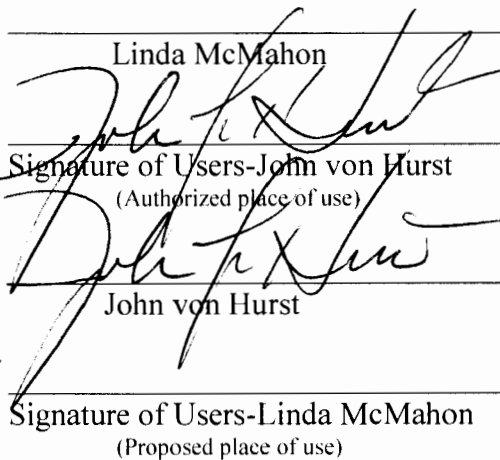 Linda McMahon
Signature of Users-John von Hurst
(Authorized place of use)
John von Hurst
Signature of Users-Linda McMahon
(Proposed place of use)